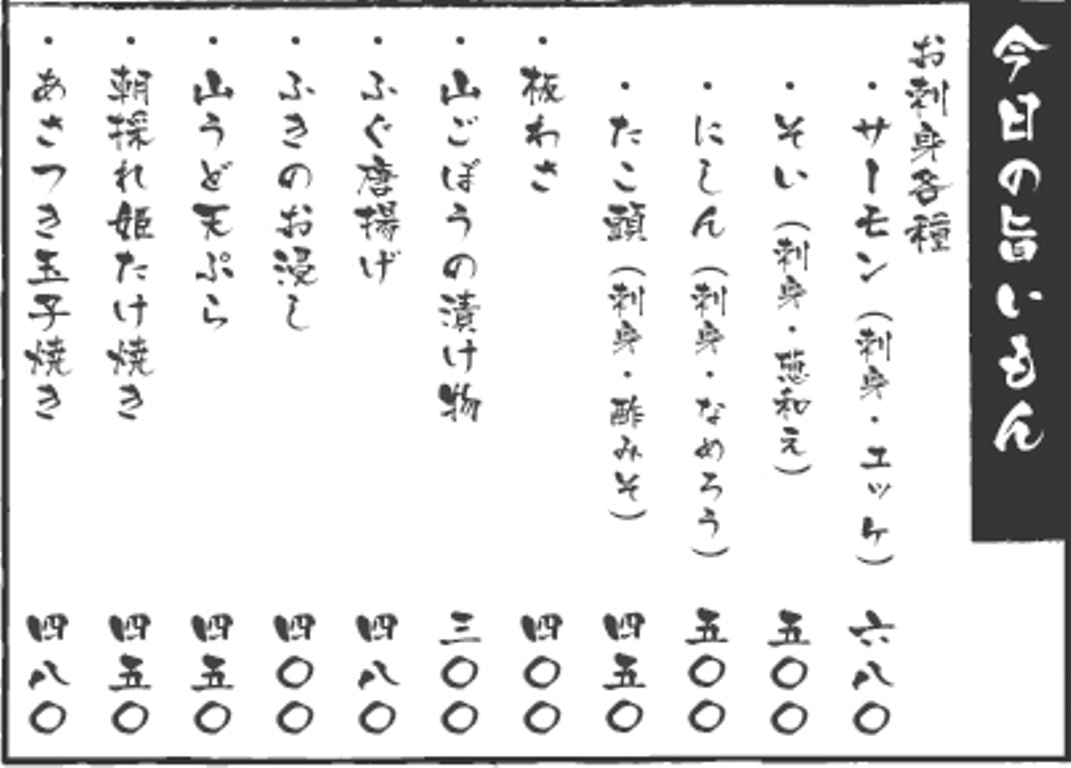 今日の旨いもん
お刺身各種
・サーモン（刺身・エッケ）六八〇
・そい（刺身・葱和え）五〇〇
・にしん（刺身・なめろう）五〇〇
・たこ頭（刺身・酢みそ）四五〇
・板わさ 四〇〇
・山ごぼうの漬け物 三〇〇
・ふぐ唐揚げ 四八〇
・ふきのお浸し 四〇〇
・山うど天ぷら 四五〇
・朝採れ姫たけ焼き 四五〇
・あさつき玉子焼き 四八〇